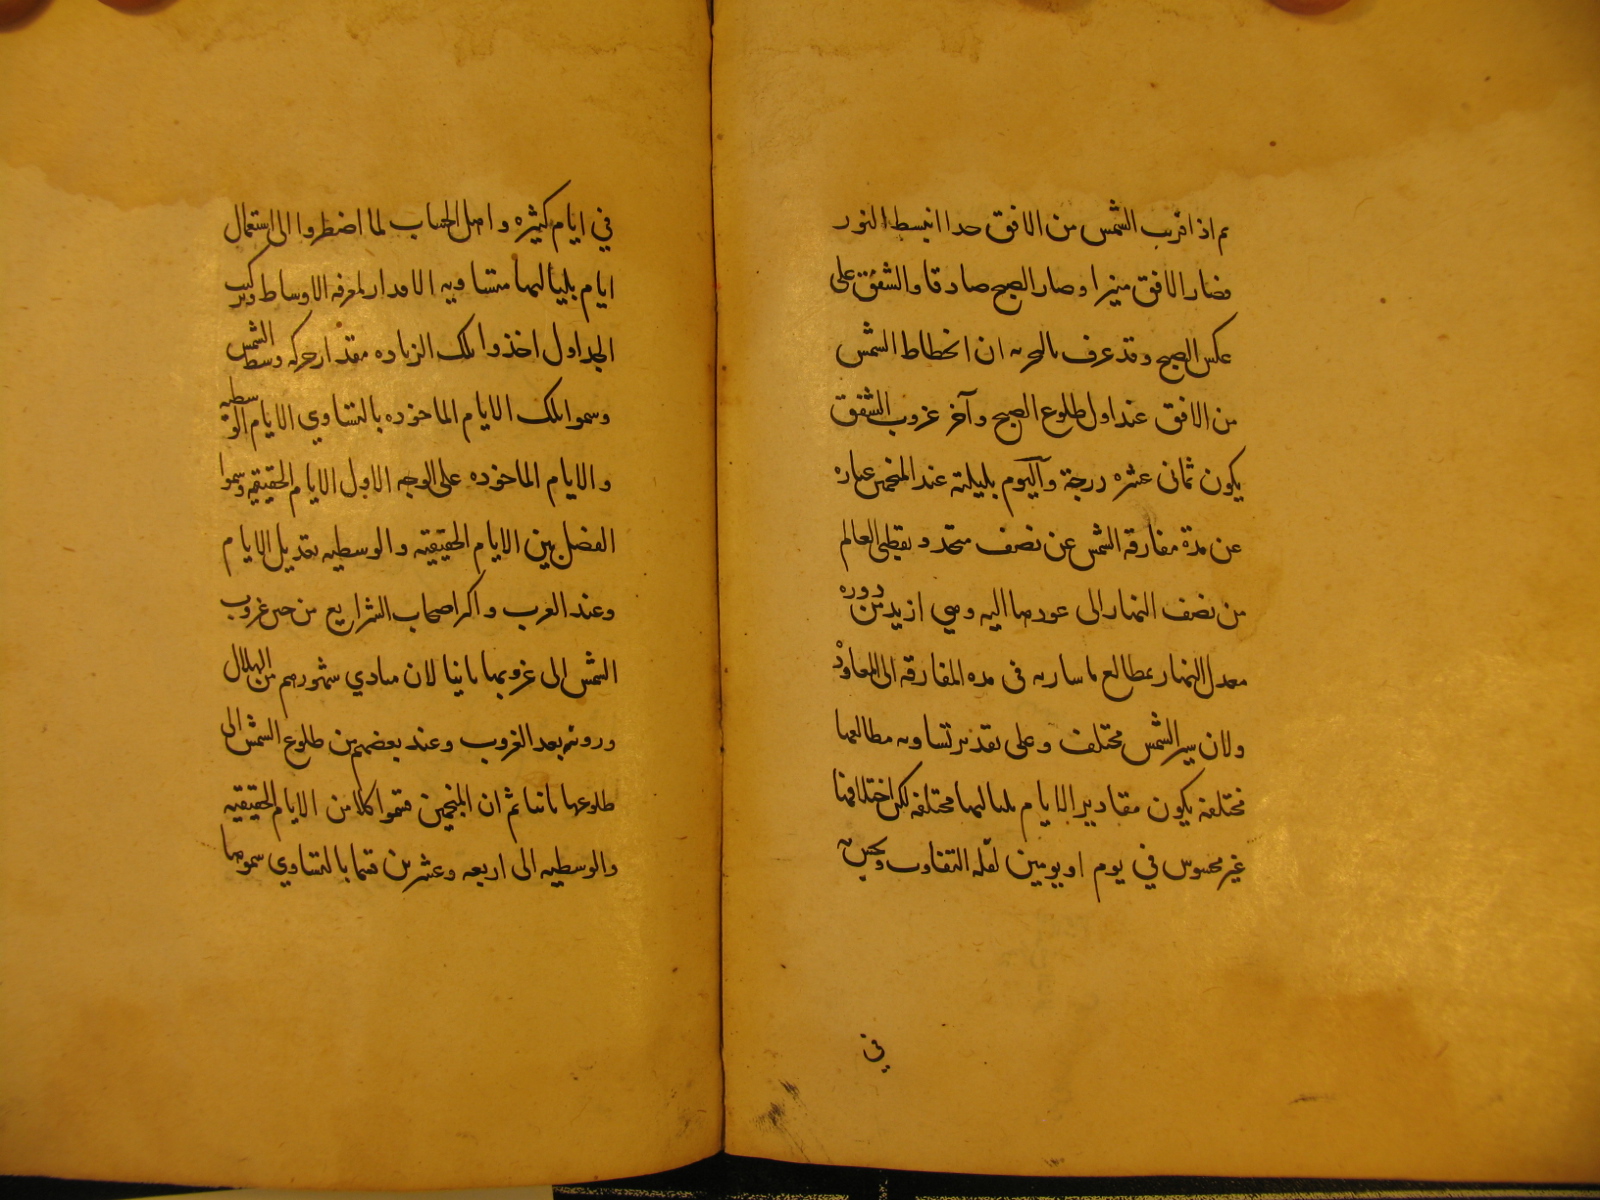 ثم اذا قربت الشمس من الافق جدا انبسط النور
فصار الافق منيرا وصار الصبح صادقا والشفق على
عكس الصبح وقد عرف بالتجربه ان انحطاط الشمس
من الافق عند اول طلوع الصبح وآخر غروب الشفق
يكون ثمانى عشره درجة وآليوم بليلته عند المنجمين عباره
عن مدة مفارقه الشمس عن نصف متحد وبقطبى العالم
من نصف النهار الى عودها اليه وهي ازيد من دوره
معدل النهار بمطالع ما سارته فى مده المفارقه الى المعاودة
ولان سير الشمس مختلف وعلى تقدير تساويه مطالعها
مختلفه يكون مقادير الايام بلياليها مختلفه لكن اختلافها
غير محسوس في يوم او يومين لقله التفاوت ويحس به
في
في ايام كثيره واهل الحساب لما اضطروا الى استعمال
ايام بلياليها متساويه الامدار لمعرفه الاوساط وتركيب
الجداول اخذوا تلك الزياده مقدار حركه وسط الشمس
وسموا تلك الايام الماخوده بالتساوي الايام الوسطيه
والايام الماخوده على الوجه الاول الايام الحقيقيه وسموا
الفضل بين الايام الحقيقيه والوسطيه تعديل الايام
وعند العرب واكثر اصحاب الشرايع من حين غروب
الشمس الى غروبها ثانيا لان مبادي شهورهم من الهلال
ورويته بعد الغروب وعند بعضهم من طلوع الشمس الى
طلوعها ثانيا ثم ان المنجمين قسموا كلا من الايام الحقيقيه
والوسطيه الى اربعه وعشرين قسما بالتساوي سموها